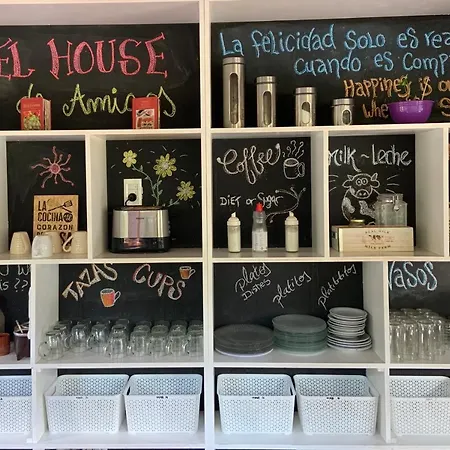 EL HOUSE
de Amigos
La felicidad Solo es rea
cuando es comp
Happiness is o
LA
COCINA
CORAZÓN
Coffee
DieT or Sugar
milk - Leche
TAZAS CUPS
Platos
Dishes
Platitos
Platititos
VASOS
??